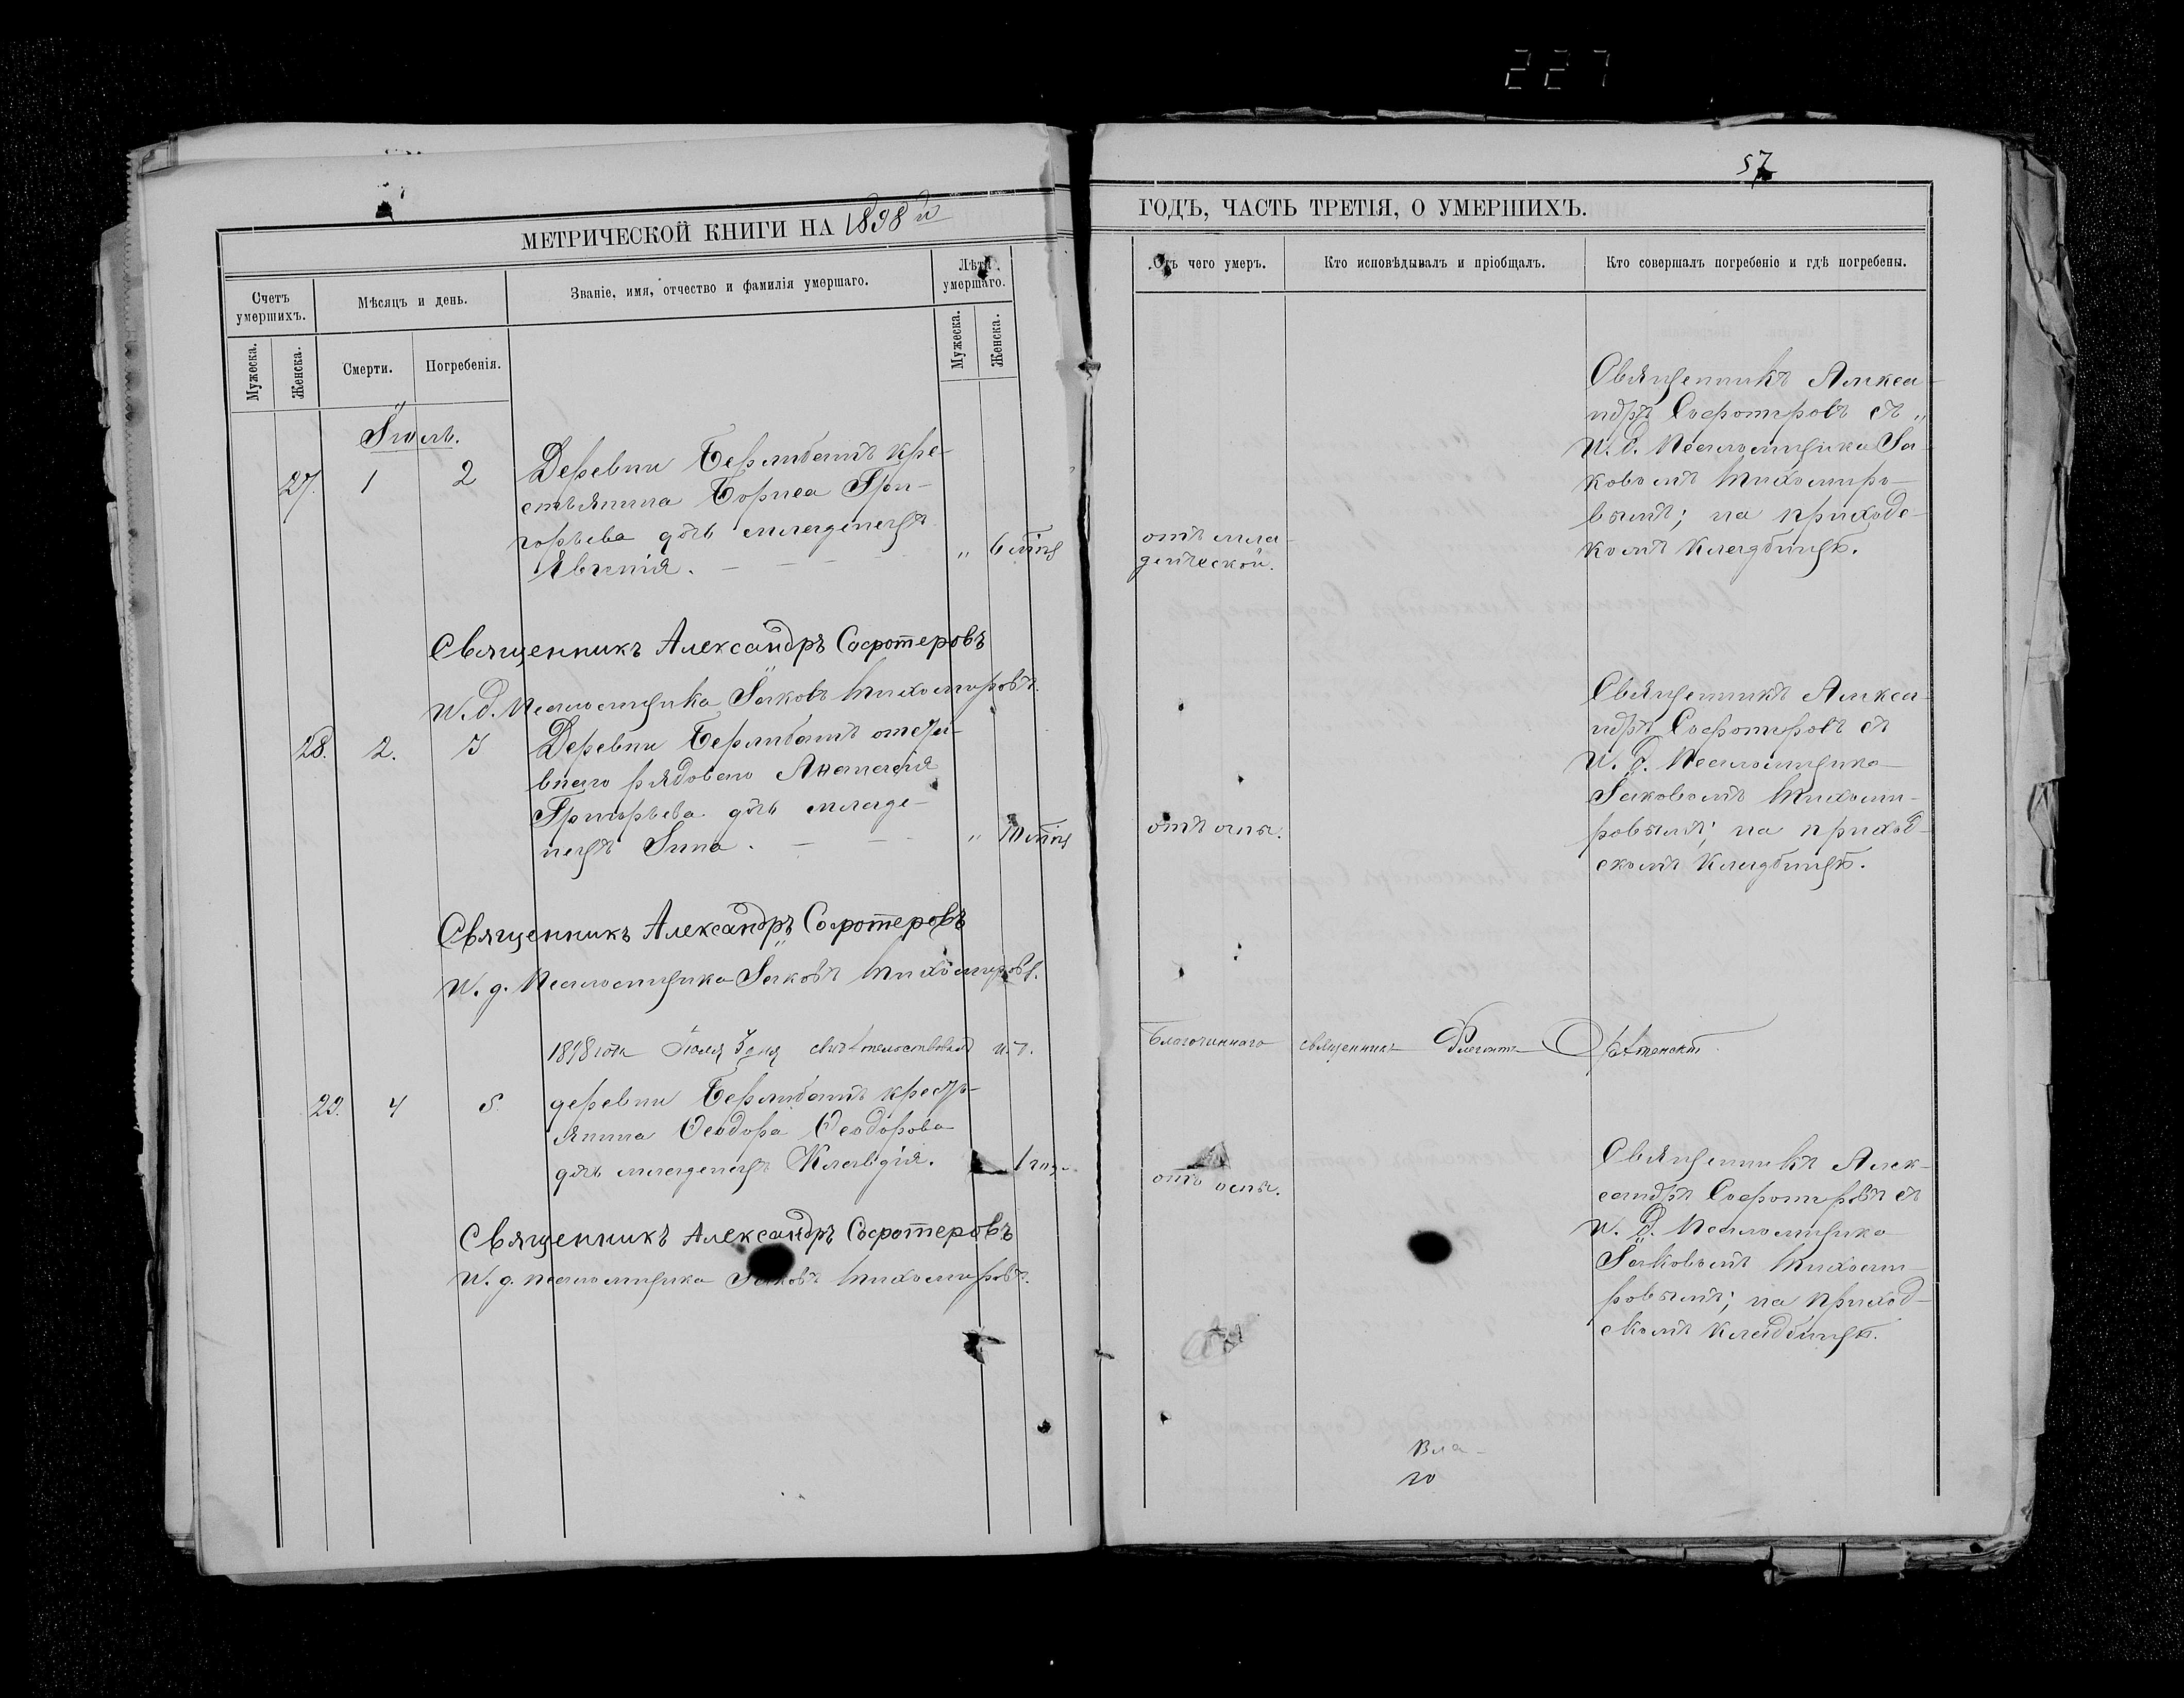 227
57
МЕТРИЧЕСКОЙ КНИГИ НА 1898 й
ГОДЪ, ЧАСТЬ ТРЕТІЯ, О УМЕРШИХЪ.
Счетъ умершихъ.
Мѣсяцъ и день.
Званіе, имя, отчество и фамилія умершаго.
Лѣта умершаго.
Мужеска.
Женска.
Смерти.
Погребенія.
Мужеска.
Женска.
Отъ чего умеръ.
Кто исповѣдывалъ и пріобщалъ.
Кто совершалъ погребеніе и гдѣ погребены.
Іюль.
27. 1 2 Деревни Берлибашъ кре-
стьянина Бориса Гри-
горьева дочь младенецъ
Евгенія. — — — „ 6 мѣсц
отъ мла-
денческой.
Священникъ Алекса-
ндръ Сосфотеровъ съ „
И. д. Псаломщика Іа-
ковомъ Тихомиро-
вымъ; на приходс-
комъ кладбищѣ.
Священникъ Александръ Сосфотеровъ
И. д. Псаломщика Іаковъ Тихомировъ.
28. 2. 3 Деревни Берлибашъ
рядового
Григорьева дочь младе-
нецъ Анна. — — „ 10 мѣсц
отъ оспы.
Священникъ Алекса-
ндръ Сосфотеровъ съ
И. д. Псаломщика
Іаковомъ Тихоми-
ровымъ; на приход-
скомъ кладбищѣ.
Священникъ Александръ Сосфотеровъ
И. д. Псаломщика Іаковъ Тихомировъ.
1898 года Іюля 3 дня свидѣтельствовалъ и. д. Благочиннаго священникъ
29. 4 5. деревни Берлибашъ кресть-
янина Ѳеодора Ѳеодорова
дочь младенецъ Клавдія. — 1 год.
отъ оспы.
Священникъ Алек-
сандръ Сосфотеровъ съ
И. д. Псаломщика
Іаковомъ Тихоми-
ровымъ; на приход-
скомъ кладбищѣ.
Священникъ Александръ Сосфотеровъ
И. д. псаломщика Іаковъ Тихомировъ.
Вла-
го